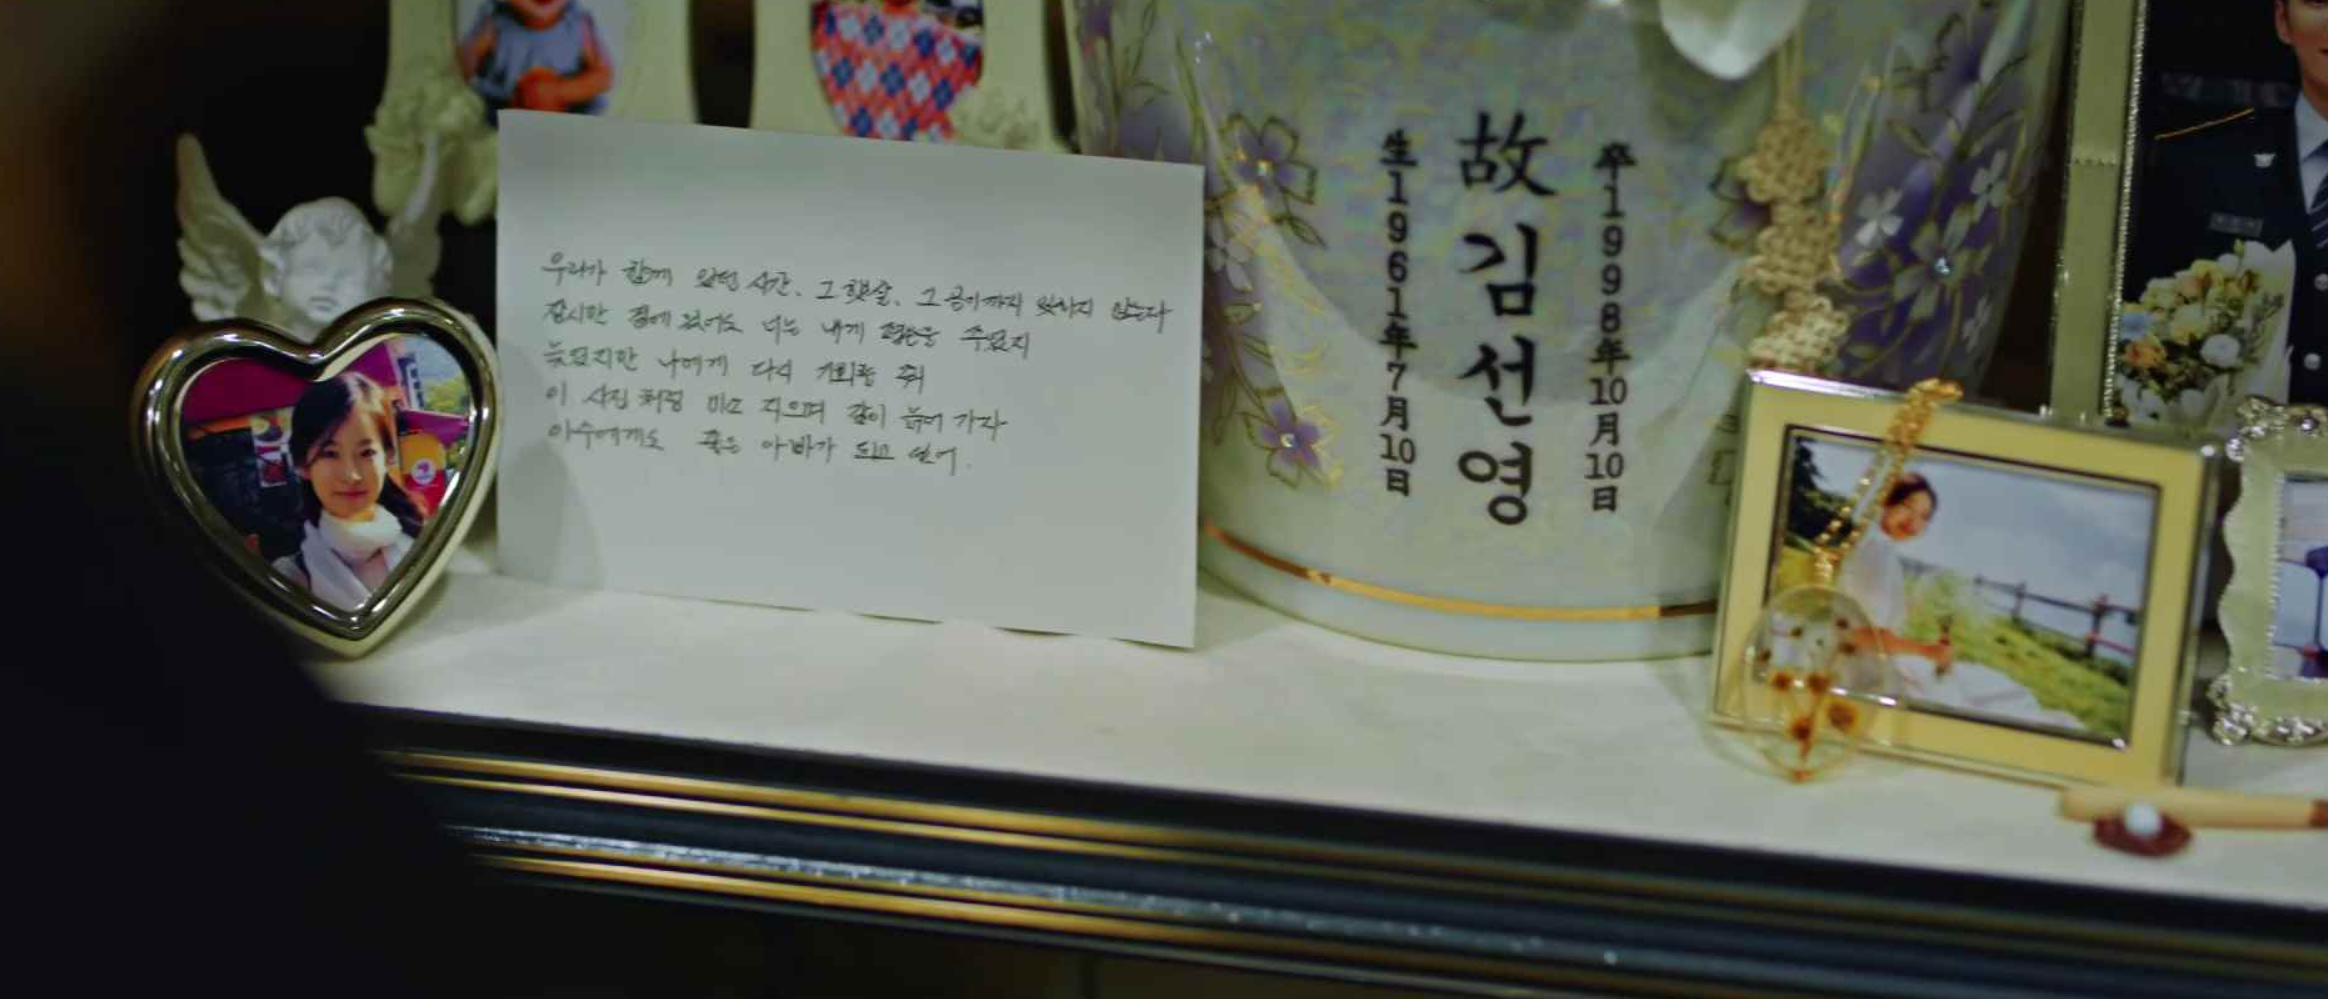 우리가 함께 있던 시간, 그 햇살, 그 공기까지 잊혀지지 않는다
잠시만 곁에 있어도 너는 내게 평온을 주었지
늦었지만 나에게 다시 기회를 줘
이 사진처럼 미소 지으며 같이 늙어 가자
좋은 아빠가 되고 싶어.
生1961年7月10日
故김선영
卒1998年10月10日